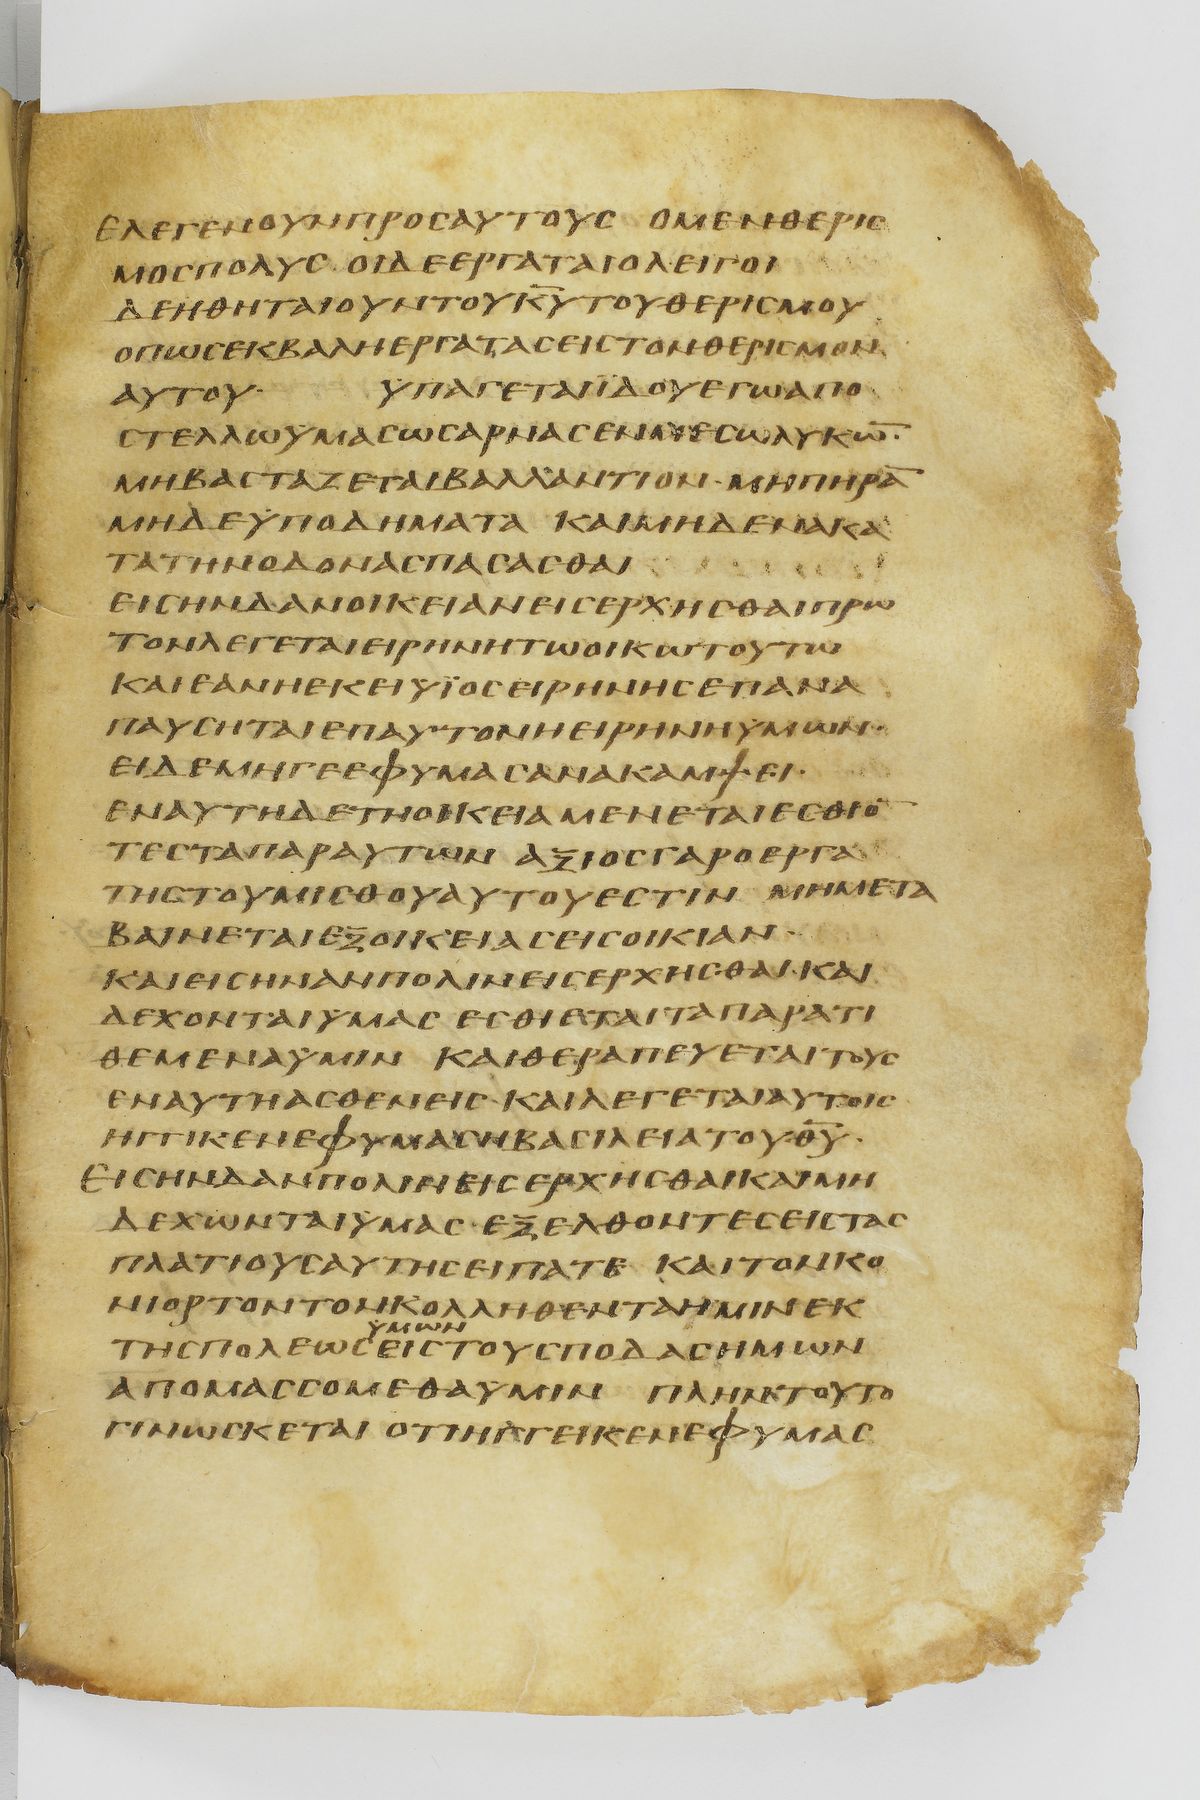 ΕλΕΓΕΝΟΥΝΠΡΟСΑΥΤΟΥС ΟΜΕΝΘΕΡΙС
ΜΟСΠΟΛΥС ΟΙΔΕΕΡΓΑΤΑΙΟΛΕΙΓΟΙ
ΔΕΗΘΗΤΑΙΟΥΝΤΟΥΚ̅Υ̅ΤΟΥΘΕΡΙСΜΟΥ
ΟΠΩСΕΚΒΑΛΗΕΡΓΑΤΑСΕΙСΤΟΝΘΕΡΙСΜΟΝ
ΑΥΤΟΥ· ΥΠΑΓΕΤΑΙΪΔΟΥΕΓΩΑΠΟ
СΤΕΛΛΩΫΜΑСΩСΑΡΝΑСΕΝΜΕСΩΛΥΚΩ̅·
ΜΗΒΑСΤΑΖΕΤΑΙΒΑΛΛΑΝΤΙΟΝ·ΜΗΠΗΡΑ̅
ΜΗΔΕΫΠΟΔΗΜΑΤΑ ΚΑΙΜΗΔΕΝΑΚΑ
ΤΑΤΗΝΟΔΟΝΑСΠΑСΑСΘΑΙ
ΕΙСΗΝΔΑΝΟΙΚΕΙΑΝΕΙСΕΡΧΗСΘΑΙΠΡΩ
ΤΟΝΛΕΓΕΤΑΙΕΙΡΗΝΗΤΩΟΙΚΩΤΟΥΤΩ
ΚΑΙΕΑΝΗΕΚΕΙΥΪΟСΕΙΡΗΝΗСΕΠΑΝΑ
ΠΑΥСΗΤΑΙΕΠΑΥΤΟΝΗΕΙΡΗΝΗΫΜΩΝ·
ΕΙΔΕΜΗΓΕΕΦΥΜΑСΑΝΑΚΑΜΨΕΙ·
ΕΝΑΥΤΗΔΕΤΗΟΙΚΕΙΑΜΕΝΕΤΑΙΕСΘΙΟ̅
ΤΕСΤΑΠΑΡΑΥΤΩΝ ΑΞΙΟСΓΑΡΟΕΡΓΑ
ΤΗСΤΟΥΜΙСΘΟΥΑΥΤΟΥΕСΤΙΝ ΜΗΜΕΤΑ
ΒΑΙΝΕΤΑΙΕΞΟΙΚΕΙΑСΕΙСΟΙΚΙΑΝ·
ΚΑΙΕΙСΗΝΑΝΠΟΛΙΝΕΙСΕΡΧΗСΘΑΙ·ΚΑΙ
ΔΕΧΟΝΤΑΙΥΜΑС ΕСΘΙΕΤΑΙΤΑΠΑΡΑΤΙ
ΘΕΜΕΝΑΫΜΙΝ ΚΑΙΘΕΡΑΠΕΥΕΤΑΙΤΟΥС
ΕΝΑΥΤΗΑСΘΕΝΕΙС·ΚΑΙΛΕΓΕΤΑΙΑΥΤΟΙС
ΗΓΓΙΚΕΝΕΦΥΜΑСΗΒΑСΙΛΕΙΑΤΟΥΘ̅Υ̅·
ΕΙСΗΝΔΑΝΠΟΛΙΝΕΙСΕΡΧΗСΘΑΙΚΑΙΜΗ
ΔΕΧΩΝΤΑΙΫΜΑС·ΕΞΕΛΘΟΝΤΕСΕΙСΤΑС
ΠΛΑΤΙΟΥСΑΥΤΗСΕΙΠΑΤΕ ΚΑΙΤΟΝΚΟ
ΝΙΟΡΤΟΝΤΟΝΚΟΛΛΗΘΕΝΤΑΗΜΙΝΕΚ
ΫΜΩΝ
ΤΗСΠΟΛΕΩСΕΙСΤΟΥСΠΟΔΑСΗΜΩΝ
ΑΠΟΜΑССΟΜΕΘΑΫΜΙΝ ΠΛΗΝΤΟΥΤΟ
ΓΙΝΩСΚΕΤΑΙ ΟΤΙΗΓΓΕΙΚΕΝΕΦΥΜΑС